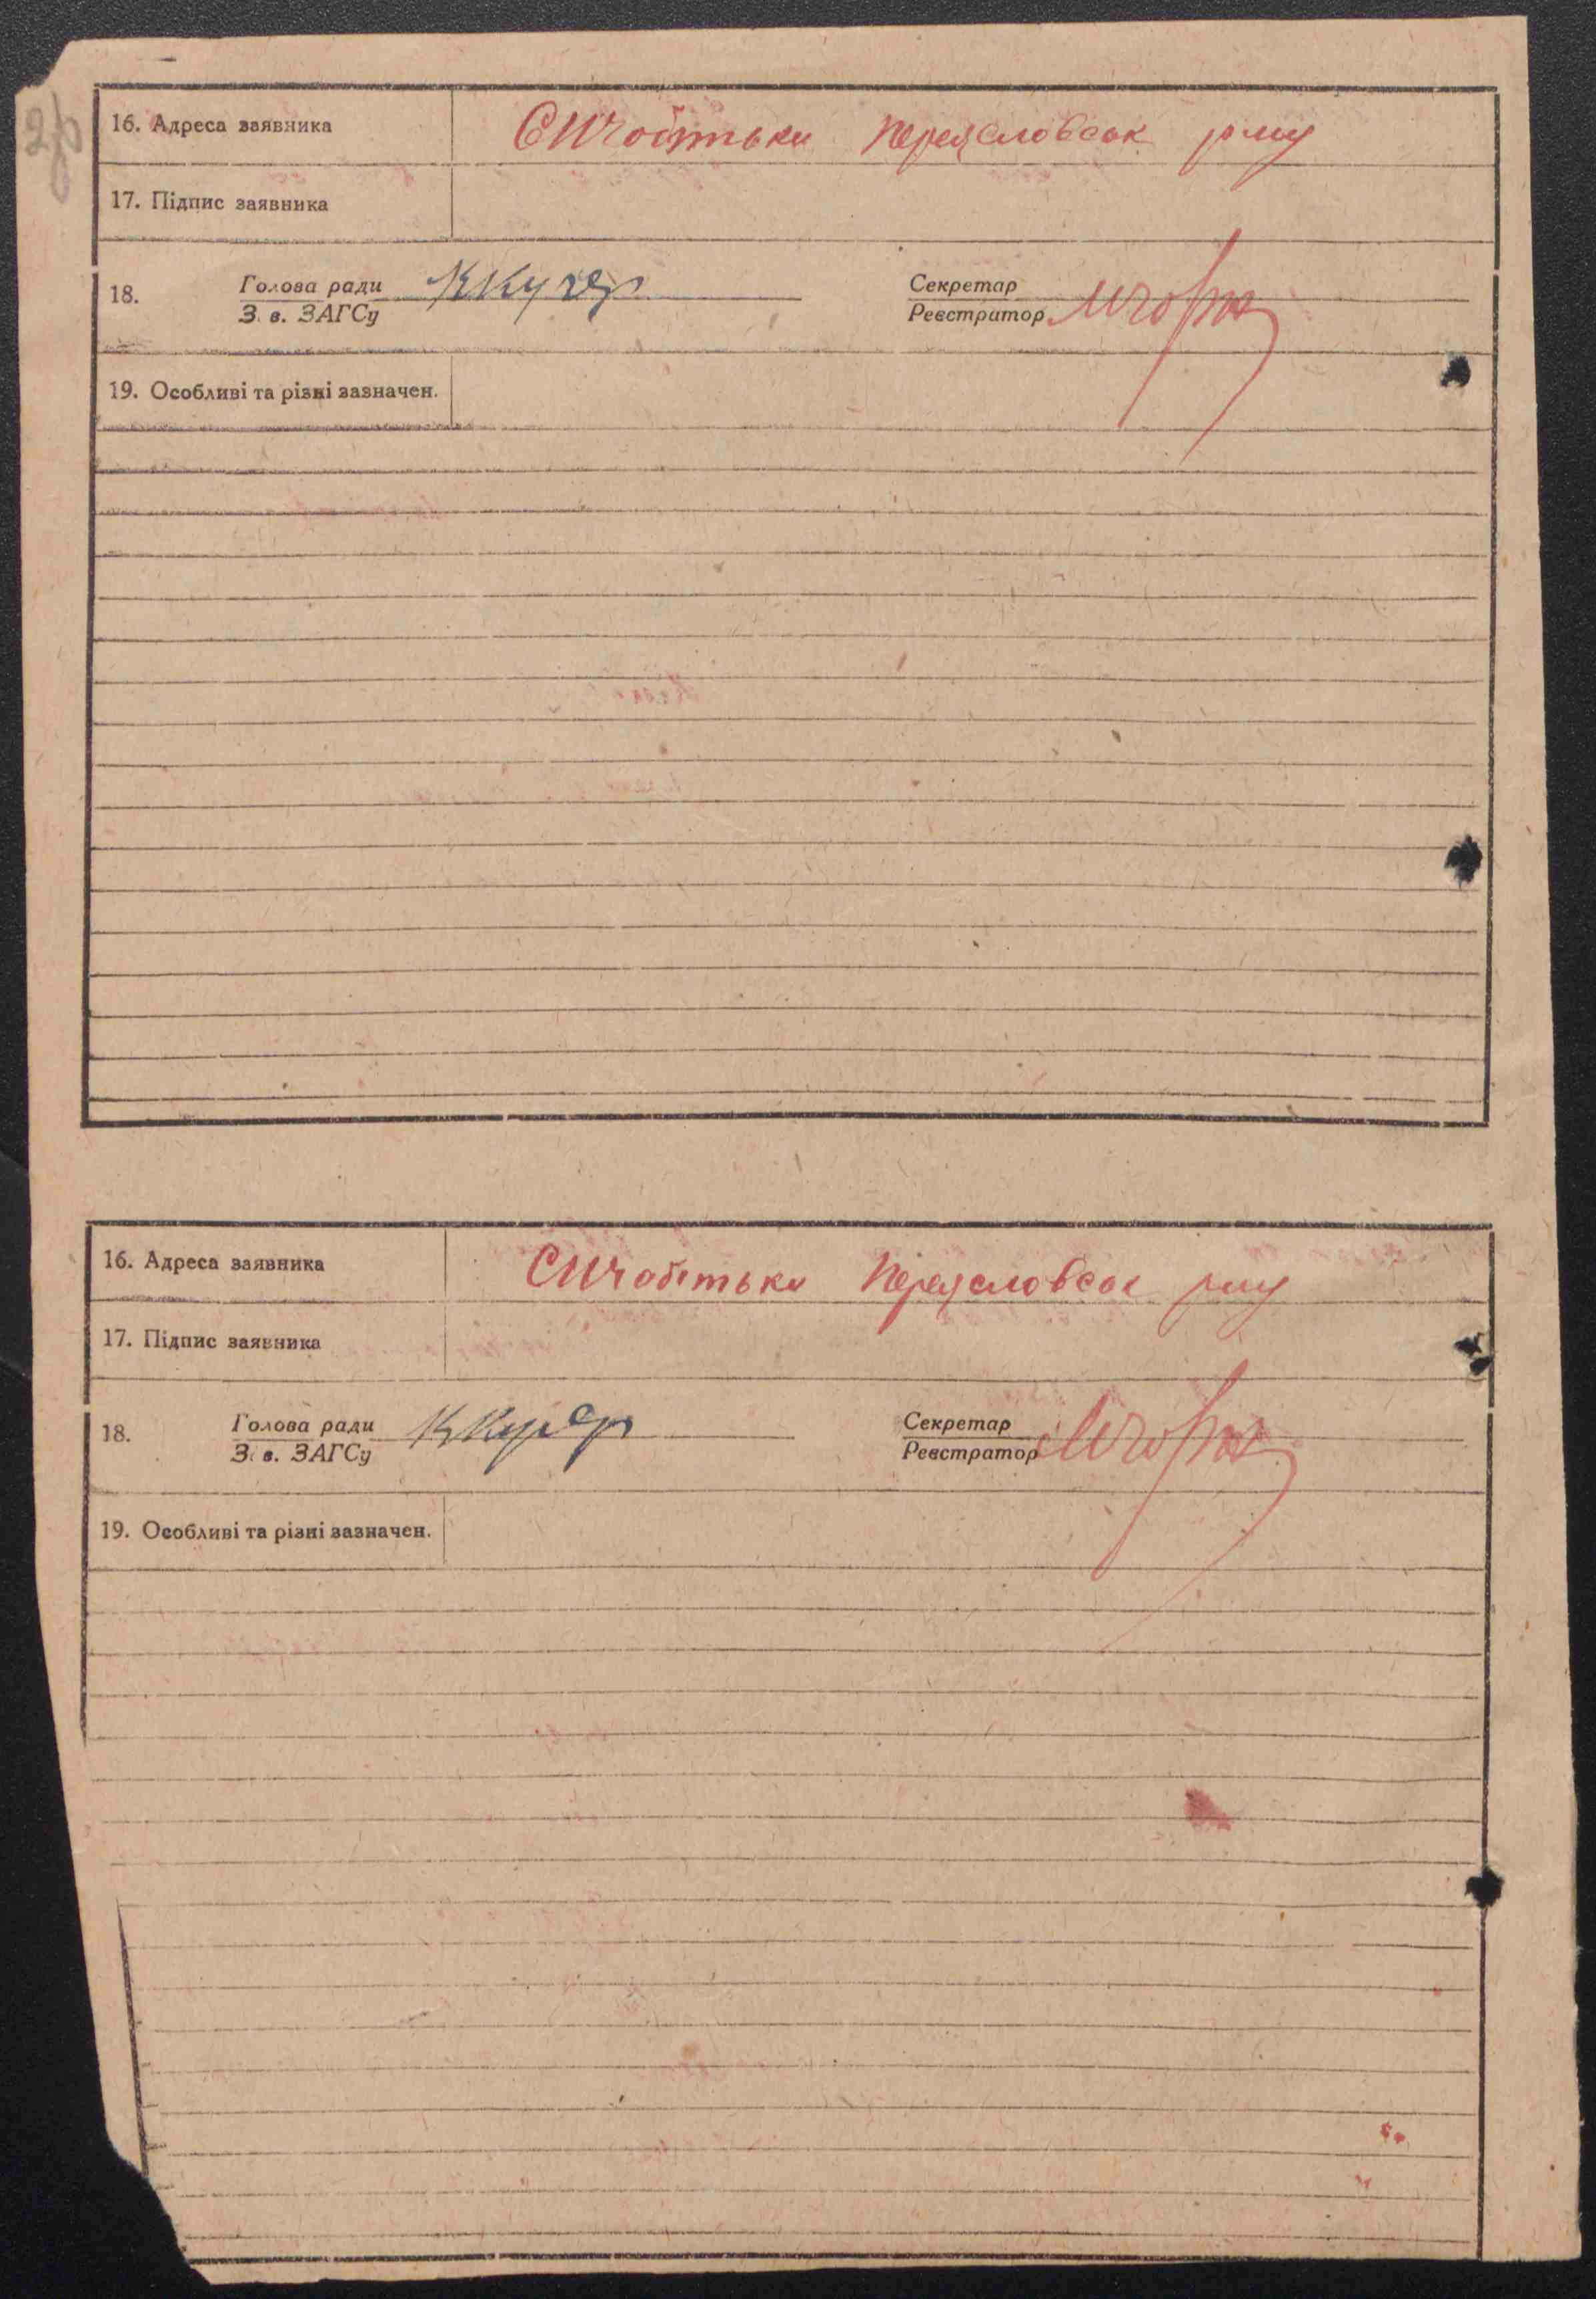 16. Адреса заявника С Чобітьки Переяславськ р-ну
17. Підпис заявника
18. Голова ради ККучер Секретар
З. в. ЗАГСу Реєстратор
19. Особливі та різні зазначен.
16. Адреса заявника С Чобітьки Переяславськ р-ну
17. Підпис заявника
18. Голова ради ККучер Секретар
З. в. ЗАГСу Реєстратор
19. Особливі та різні зазначен.